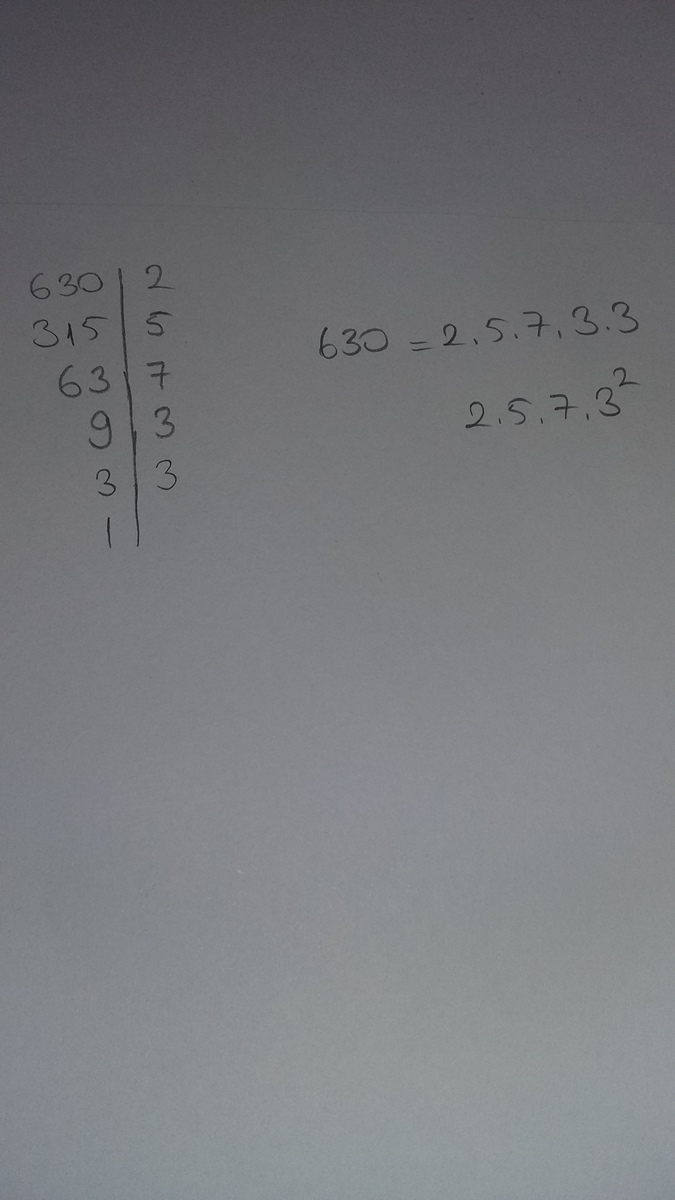 630 | 2
315 | 5
63 | 7
9 | 3
3 | 3
1 |
630 = 2.5.7.3.3
2.5.7.3²